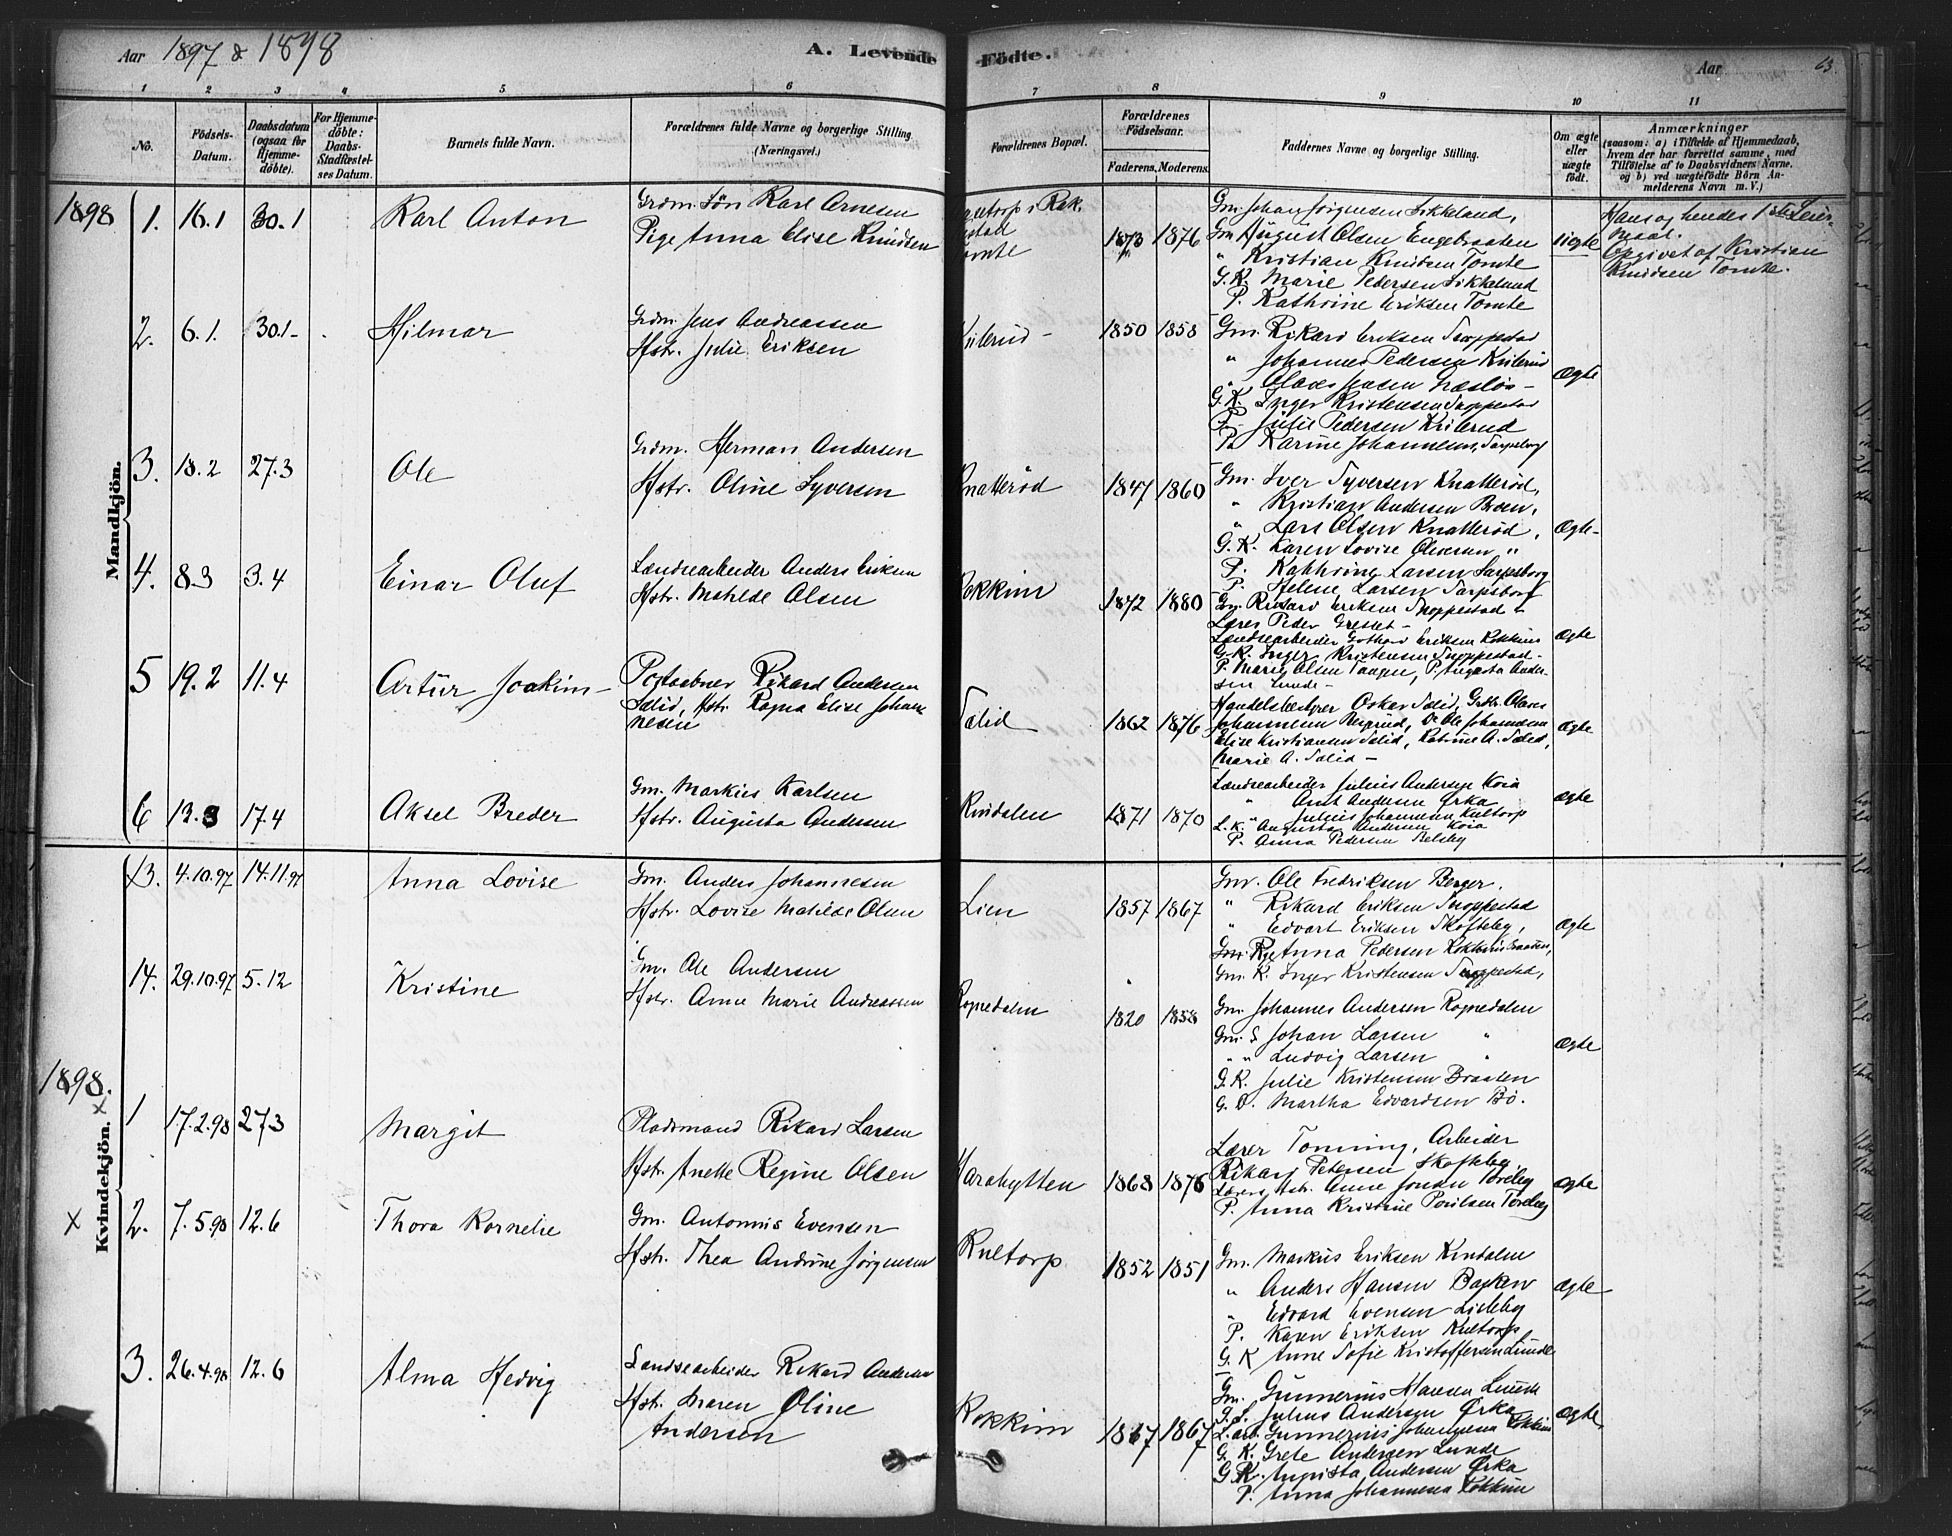 Aar 1897 & 1898
A. Levende Födte.
Aar
63
1 2 3 4 5 6 7 8 9 10 11
No.
Födsels-Datum.
Daabsdatum (ogsaa for Hjemme-döbte).
For Hjemme-döbte: Daabs-Stadfæstel-ses Datum.
Barnets fulde Navn.
Forældrenes fulde Navne og borgerlige Stilling. (Næringsvei.)
Forældrenes Bopæl.
Forældrenes Födselsaar.
Faderens. Moderens.
Faddernes Navne og borgerlige Stilling.
Om ægte eller uægte födt.
Anmærkninger
(saasom: a) i Tilfælde af Hjemmedaab, hvem der har forrettet samme, med Tilföielse af to Daabsvidners Navne. og b) ved uægtefödte Börn Anmelderens Navn m. V.)
Mandkjön.
1898
1. 16.1 30.1 Karl Anton
Grdm. Søn Karl Arnesen
Pige Anna Elise Knudsen
Tomte
1873 1876
Gm. Johan Jørgensen Sikkeland,
Gm August Olsen Engebraaten
" Kristian Knudsen Tomte
G.K. Marie Pedersen Sikkeland
P. Kathrine Eriksen Tomte
uegte
Hans og hendes 1ste Leiermaal.
Opgivet af Kristian
Knudsen Tomte.
2. 6.1. 30.1- Hilmar
Grdm. Jens Andreassen
Hstr. Julie Eriksen
1850 1858
Gm. Rikard Eriksen Snoppestad
" Johannes Pedersen Krilerud
" Olaves Jensen Næsløs -
G.K. Inger Kristensen Snoppestad
P. Julie Pedersen Krilerud
P. Karine Johannesen, Sarpsborg
Ægte
3. 18.2 27.3 Ole
Grdm. Herman Andersen
Hstr. Oline Syversen
Knatterød
1847 1860
Gm. Iver Syversen Knatterød,
" Kristian Andersen Broen,
" Lars Olsen Knatterød,
G.K. Karen Lovise Olversen "
P. Kathrine Larsen Sarpsborg
P. Helene Larsen Sarpsborg
Ægte-
4. 8.3 3.4 Einar Oluf
Landsearbeider Anders Eriksen
Hstr. Mathilde Olsen
Kokkim
1872 1880
Gm. Rikard Eriksen Snoppestad -
Lærer Peder Gresset -
Landsearbeider Gothard Eriksen Kokkim
G.K. Inger Kristensen Snoppestad -
P. Marie Olsen Taagen, P. Augusta Andersen Lunde -
Ægte
5 19.2 11.4 Artur Joakim -
Postaabner Rikard Andersen
Sælid, Hstr. Ragna Elise Johannesen
Sælid
1862 1876
Handelsbestyrer Oskar Sælid, Grdbr. Olaves
Johannesen Bergerud, Do Ole Johannesen
Elise Kristiansen Sælid, Katrine A. Sælid,
Marie A. Sælid -
Ægte
6 13.3 17.4 Aksel Breder
Gm. Markus Karlsen
Hstr. Augusta Andersen
Kindalen
1871 1870
Landsearbeider Julius Andersen Koia
" Anst Andersen Ørka
" Julius Johannesen Kultorp
L.K. Augusta Andersen Koia
P. Anna Pedersen Belsby
Ægte
Kvindekjön.
13. 4.10.97 14.11.97 Anna Lovise
Gm. Anders Johannesen
Hstr. Lovise Matilde Olsen
Lien
1857 1867
Gm. Ole Fredriksen Berger.
" Rikard Eriksen Snoppestad
" Edvart Eriksen Skofteby,
Anna Pedersen Kokkim Braaten,
Gm. K. Inger Kristensen Snoppestad,
Ægte
14. 29.10.97 5.12 Kristine
Gm. Ole Andersen
Hstr. Anne Marie Andreassen
Rognedalen
1820 1858
Gm. Johannes Andersen Rognedalen
Gm. S Johan Larsen "
" " Ludvig Larsen "
G.K. Julie Kristensen Braaten
G.D. Martha Edvardsen Bø.
Ægte
1898.
x 1 17.2.98 27.3 Margit
Pladsmand Rikard Larsen
Hstr. Anette Regine Olsen
Harahytten
1868 1876
Lærer Tonning, Arbeider
Rikard Petersen Skofteby
Lærers Hstr. Anne Jonsen Toreby
P. Anna Kristine Poulsen Toreby
Ægte
x 2. 7.5.98 12.6 Thora Kornelie
Gm. Antonius Evensen
Hstr. Thea Andrine Jørgensen
Kultorp
1852 1851
Gm. Markus Eriksen Kindalen
" Anders Hansen Bakken
" Edvard Evensen Lisleby
P. Karen Eriksen Kultorp,
G.K Anne Sofie Kristoffersen Lunde
Ægte
3. 26.4.98 12.6 Alma Hedvig
Landsearbeider Rikard Andersen
Hstr. Maren Oline
Andersen
Kokkim
1867 1867
Gm. Gunnerius Hansen Lunde
G.S. Julius Andersen Ørka
L.arb. Gunnerius Johannesen Kokkim
G.K. Grete Andersen Lunde
G.K. Augusta Andersen Ørka
P. Anna Johannesen Kokkim
Ægte